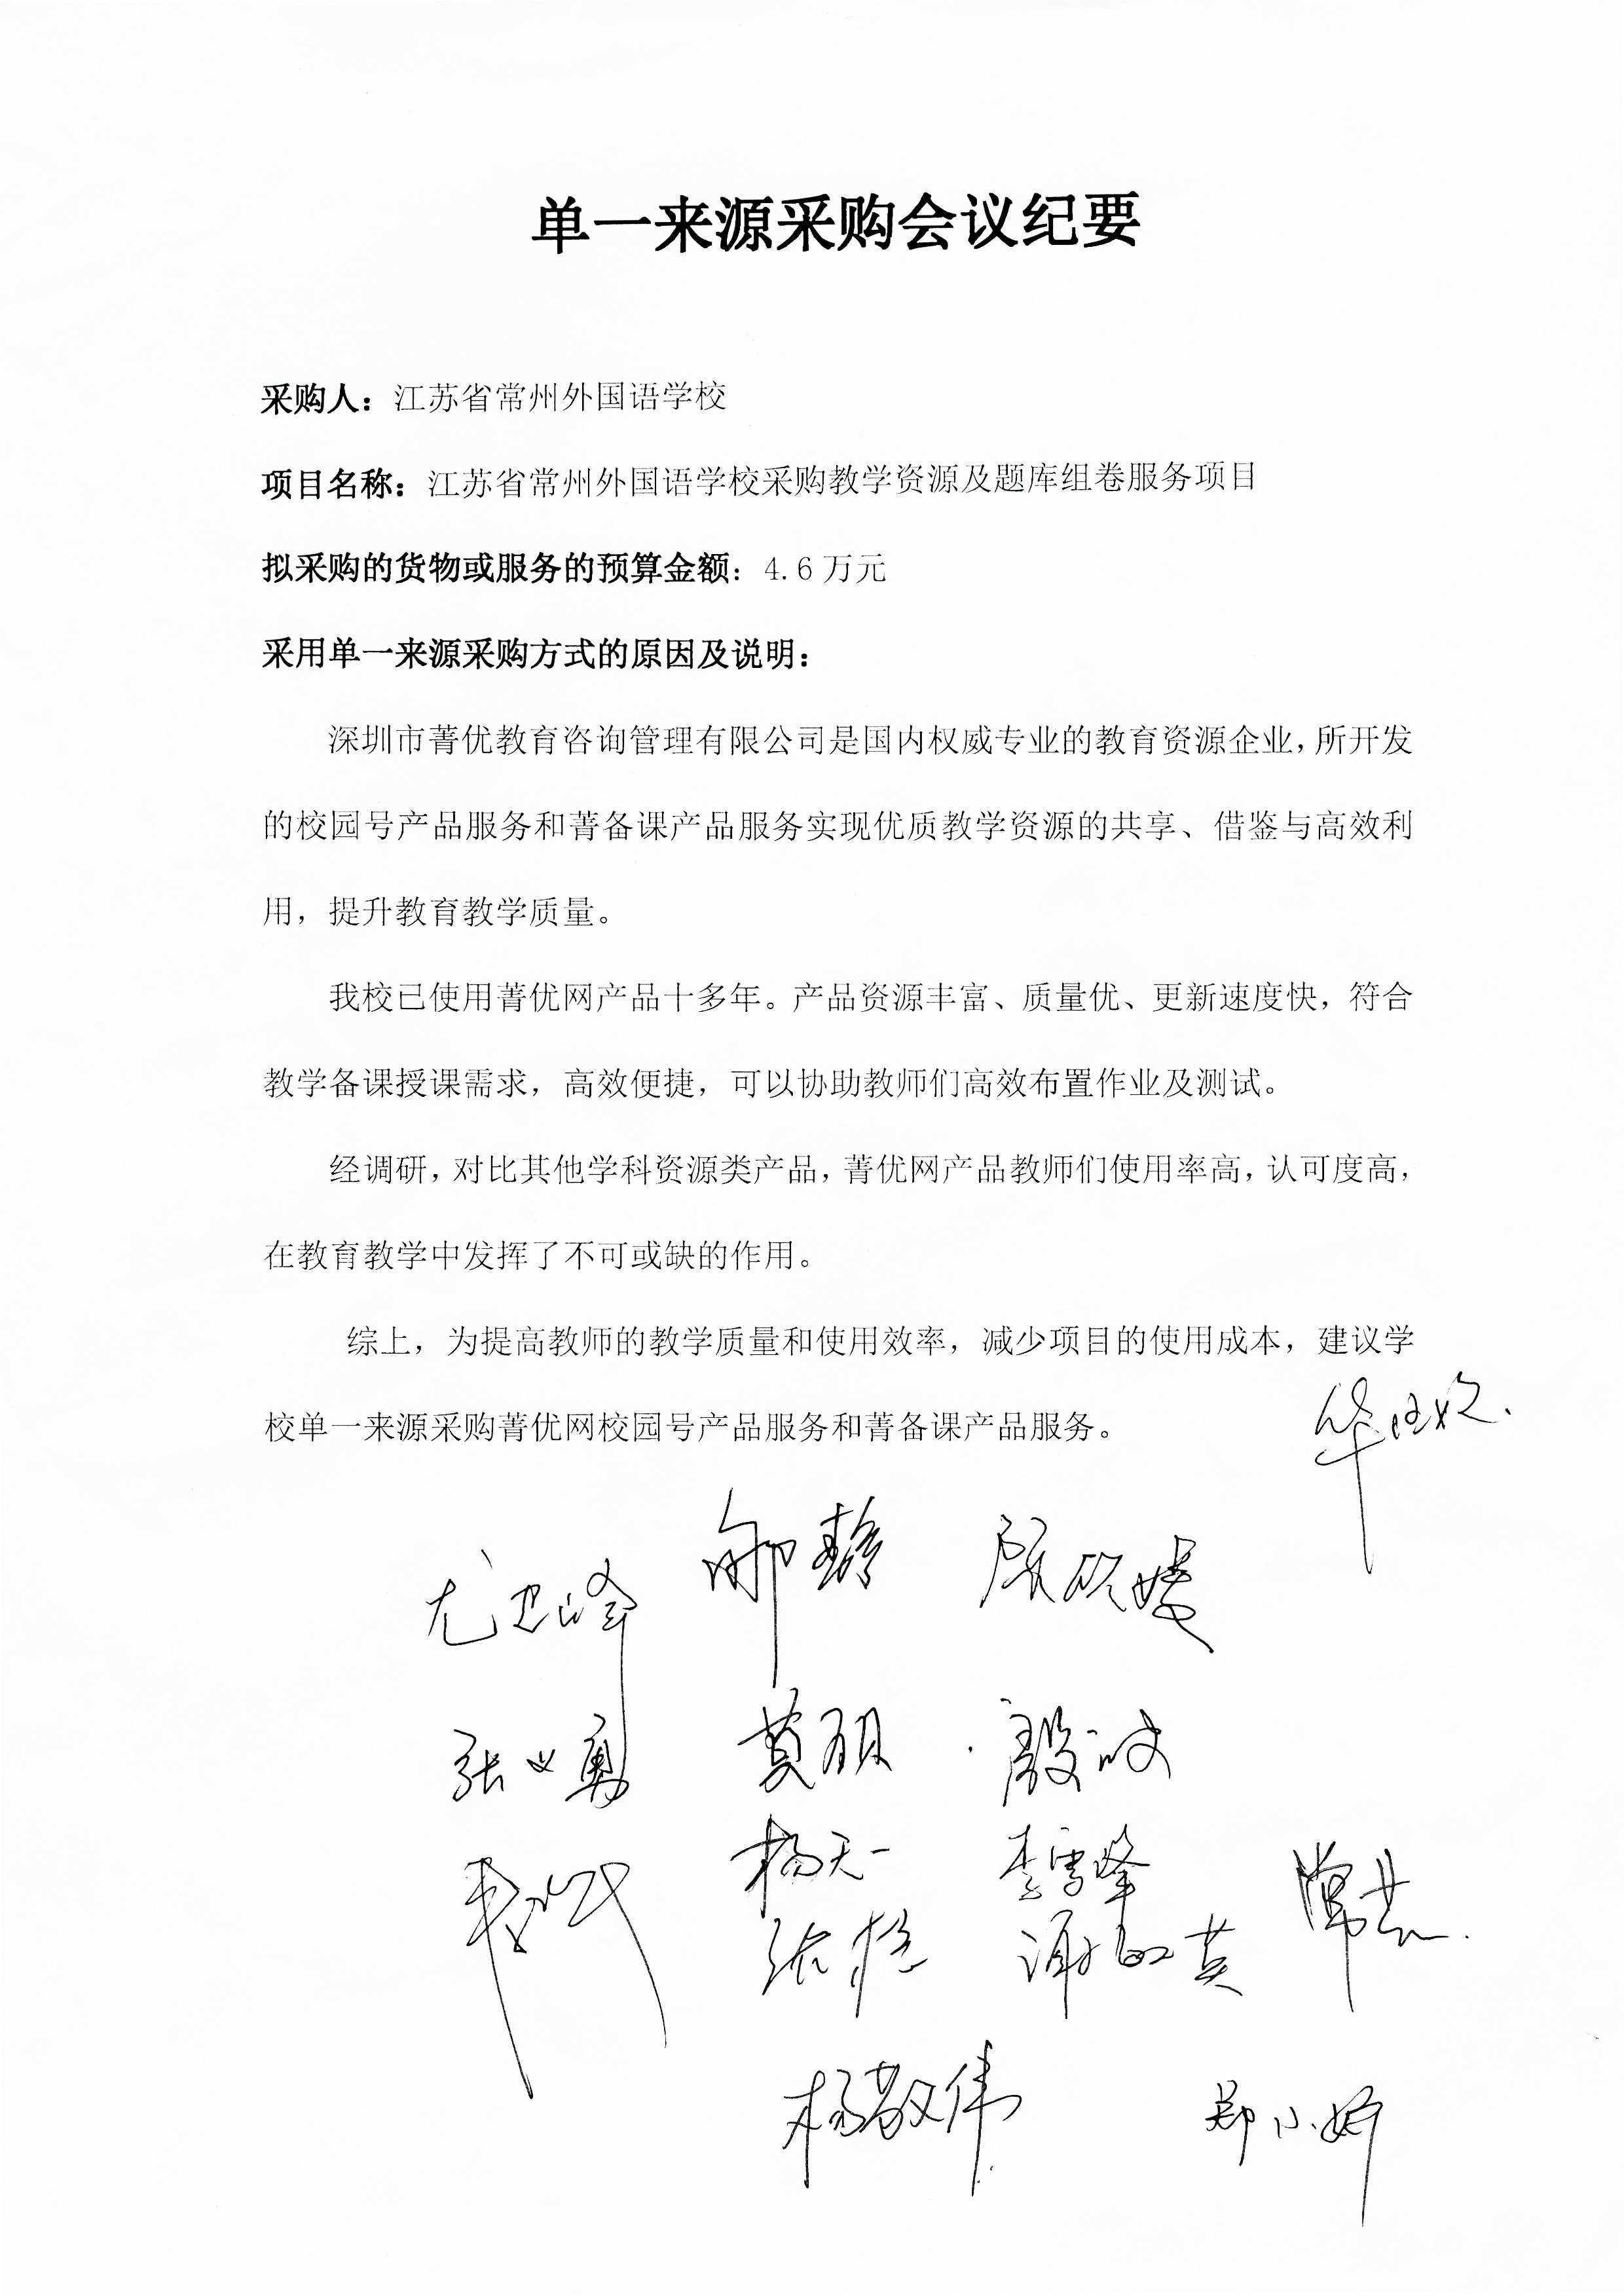 单一来源采购会议纪要
采购人：江苏省常州外国语学校
项目名称：江苏省常州外国语学校采购教学资源及题库组卷服务项目
拟采购的货物或服务的预算金额：4.6万元
采用单一来源采购方式的原因及说明：
深圳市菁优教育咨询管理有限公司是国内权威专业的教育资源企业，所开发
的校园号产品服务和菁备课产品服务实现优质教学资源的共享、借鉴与高效利
用，提升教育教学质量。
我校已使用菁优网产品十多年。产品资源丰富、质量优、更新速度快，符合
教学备课授课需求，高效便捷，可以协助教师们高效布置作业及测试。
经调研，对比其他学科资源类产品，菁优网产品教师们使用率高，认可度高，
在教育教学中发挥了不可或缺的作用。
综上，为提高教师的教学质量和使用效率，减少项目的使用成本，建议学
校单一来源采购菁优网校园号产品服务和菁备课产品服务。
尤卫峰
张义勇 莫丽
杨天一 李雪峰
杨敬伟 郑小娇